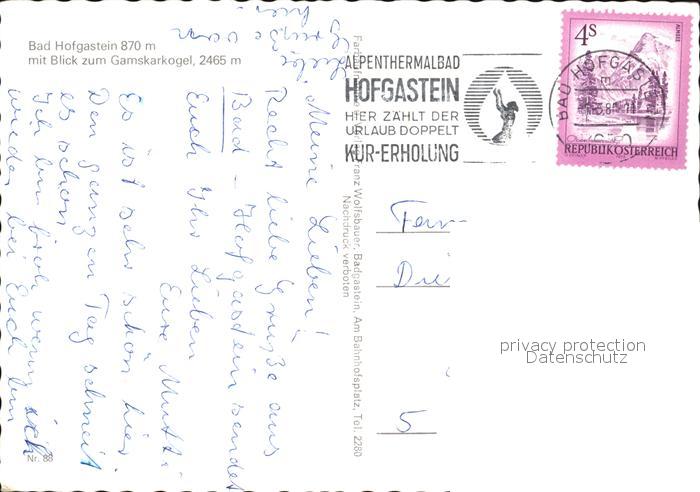 Bad Hofgastein 870 m
mit Blick zum Gamskarkogel, 2465 m
Meine Lieben!
Recht liebe Grüße aus
Bad-Hofgastein sendet
Euch Ihr Lieben
Eure Mutti
Es ist sehr schön hier
Den ganzen Tag schneit
es schon
Ich bin froh wenn ich
wieder bei Euch bin
Nr. 88
Franz Wolfsbauer, Badgastein, Am Bahnhofsplatz, Tel. 2280
Nachdruck verboten
ALPENTHERMALBAD
HOFGASTEIN
HIER ZÄHLT DER
URLAUB DOPPELT
KUR-ERHOLUNG
BAD HOFGAS
4S
ALMSEE
REPUBLIK ÖSTERREICH
Fam
5
privacy protection
Datenschutz